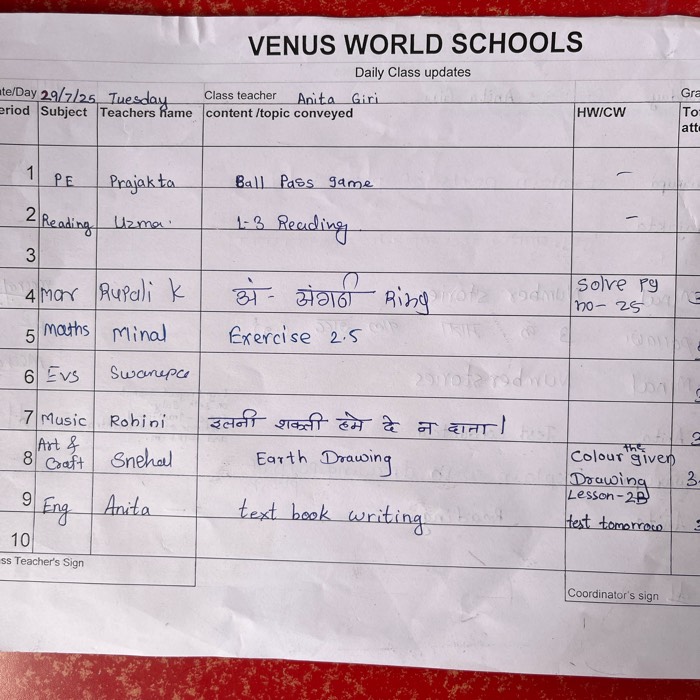 VENUS WORLD SCHOOLS
Daily Class updates
te/Day 29/7/25 Tuesday Class teacher Anita Giri Gra
eriod Subject Teachers name content /topic conveyed HW/CW To
att
1 PE Prajakta Ball Pass game -
2 Reading Uzma. 1-3 Reading -
3
4 mar Rupali K अं - अंगठी Ring Solve Pg
no- 25
5 maths Minal Exercise 2.5
6 Evs
7 Music Rohini इतनी शक्ती हमे दे न दाता।
8 Art &
Craft Snehal Earth Drawing Colour the given
Drawing
9 Eng Anita text book writing Lesson-2B
test tomorrow
10
ss Teacher's Sign
Coordinator's sign